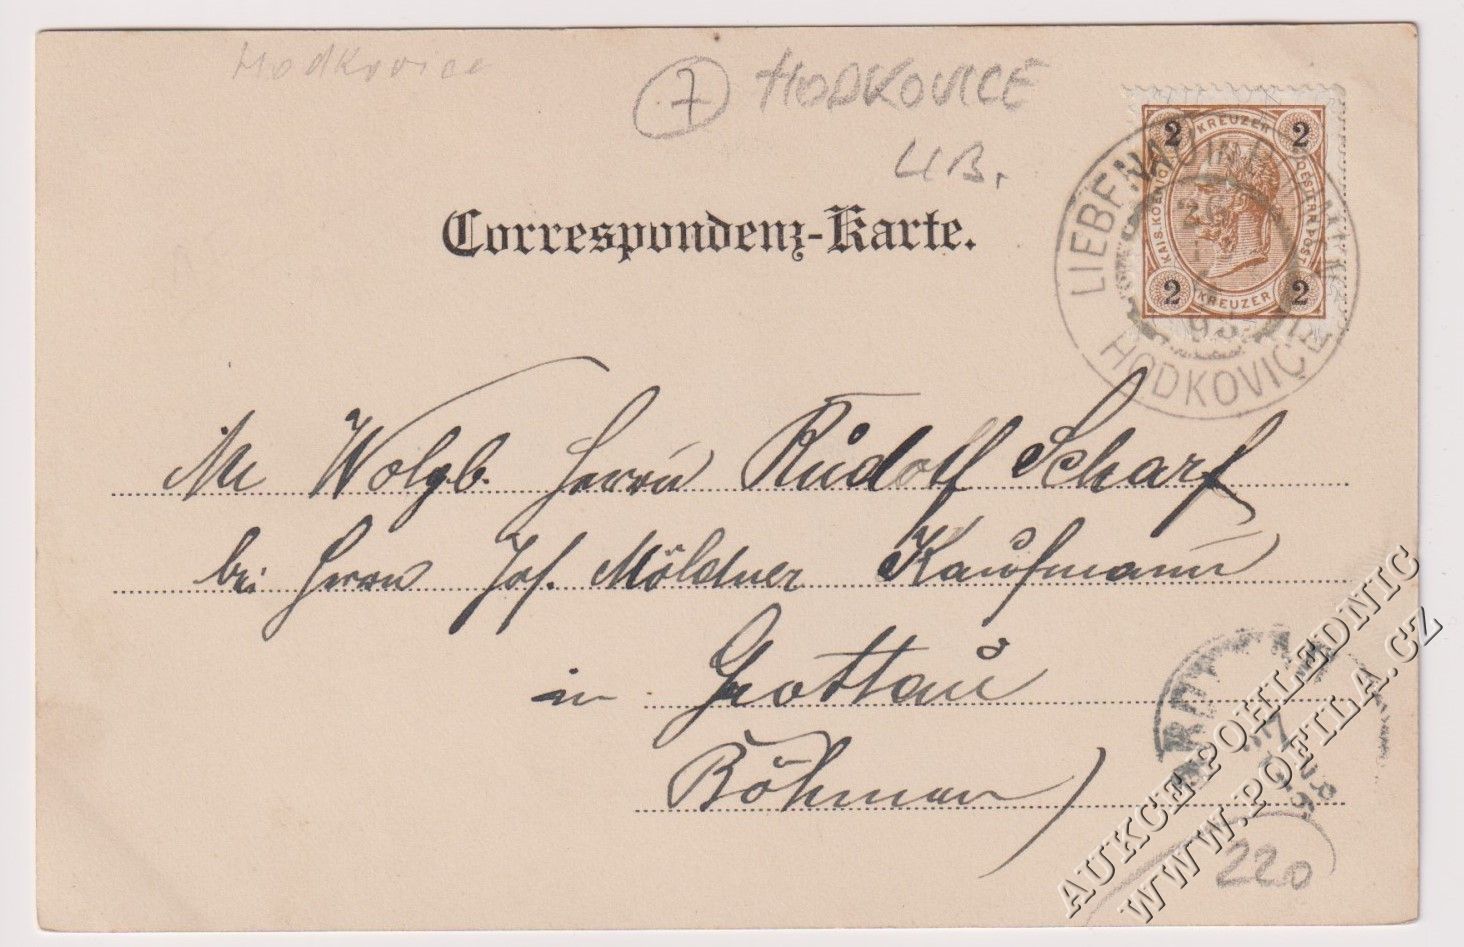 Hodkovice
7 HODKOVICE
LIB.
Correspondenz-Karte.
2 KREUZER 2
KAIS. KOENIGL. OESTERR. POST
2 KREUZER 2
LIEBENAU IN
HODKOVICE
98
An Wolgb. Herrn Rudolf Scharf
bei Herrn Jos. Möldner Kaufmann
in Grottau
Böhmen
220
AUKCE POHLEDNIC
WWW.POFILA.CZ